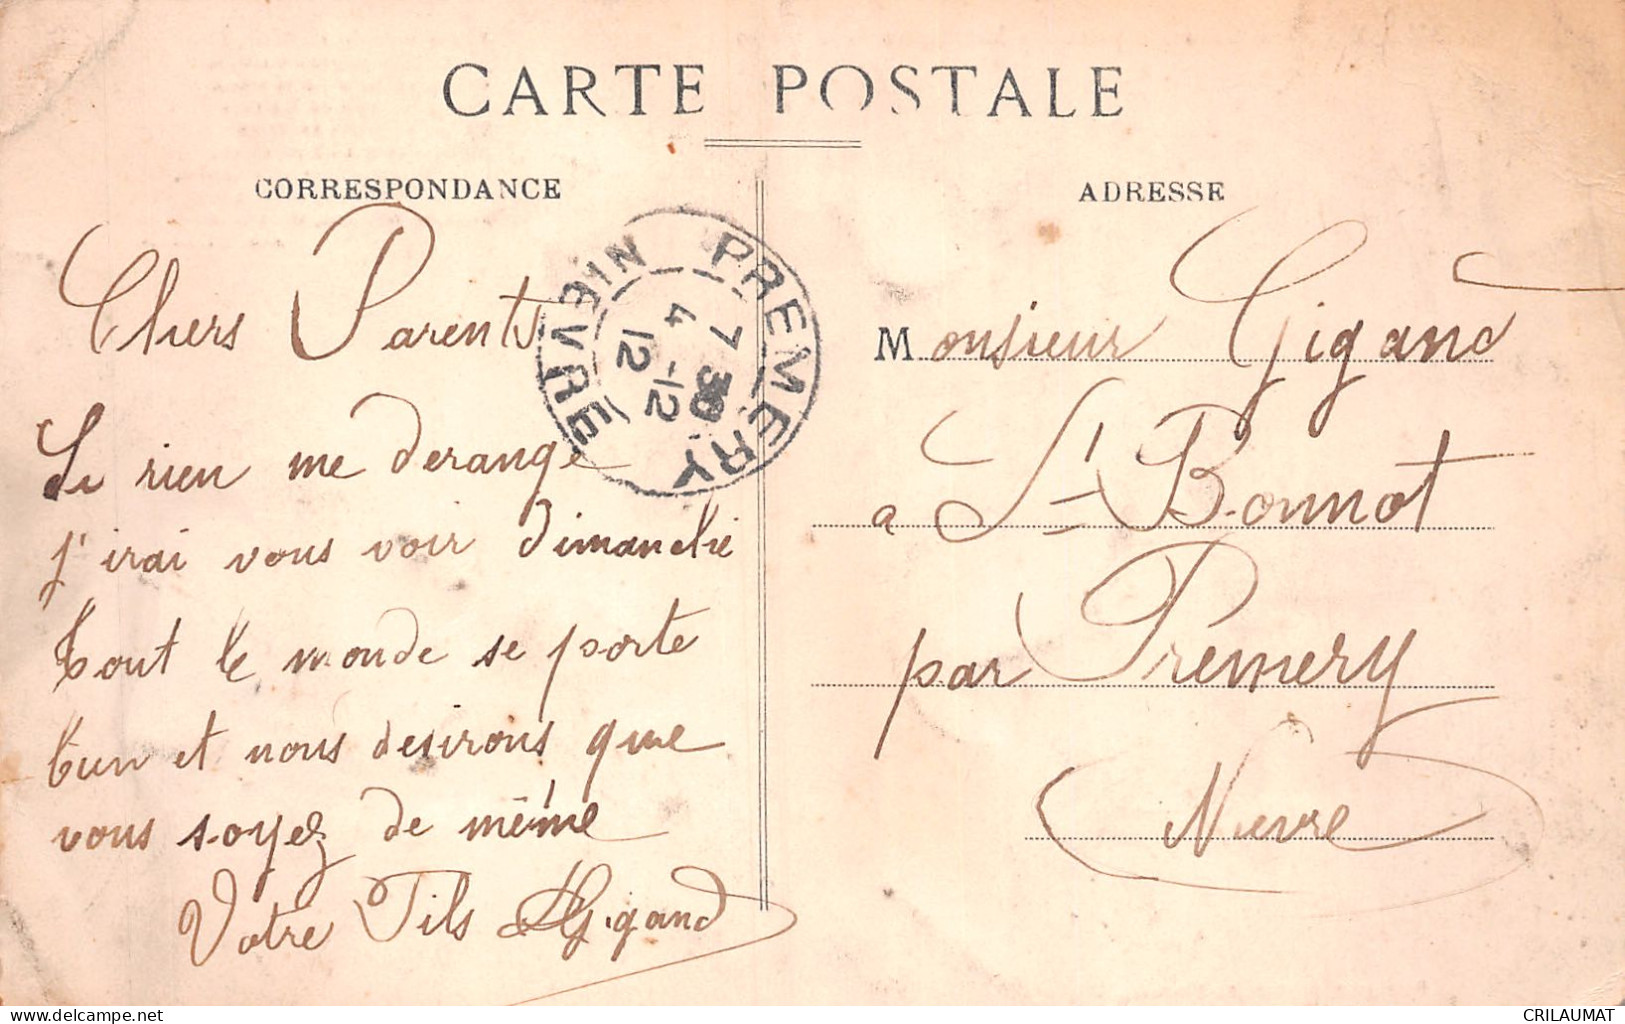 CARTE POSTALE
CORRESPONDANCE
Chers Parents
Si rien me derange
j'irai vous voir dimanche
tout le monde se porte
bien et nous desirons que
vous soyez de même
Votre Fils Gigand
PREMERY
NIEVRE
7 30
4 -12
12
ADRESSE
Monsieur Gigand
a St Bonnot
par Premery
Nievre
delcampe.net
CRILAUMAT